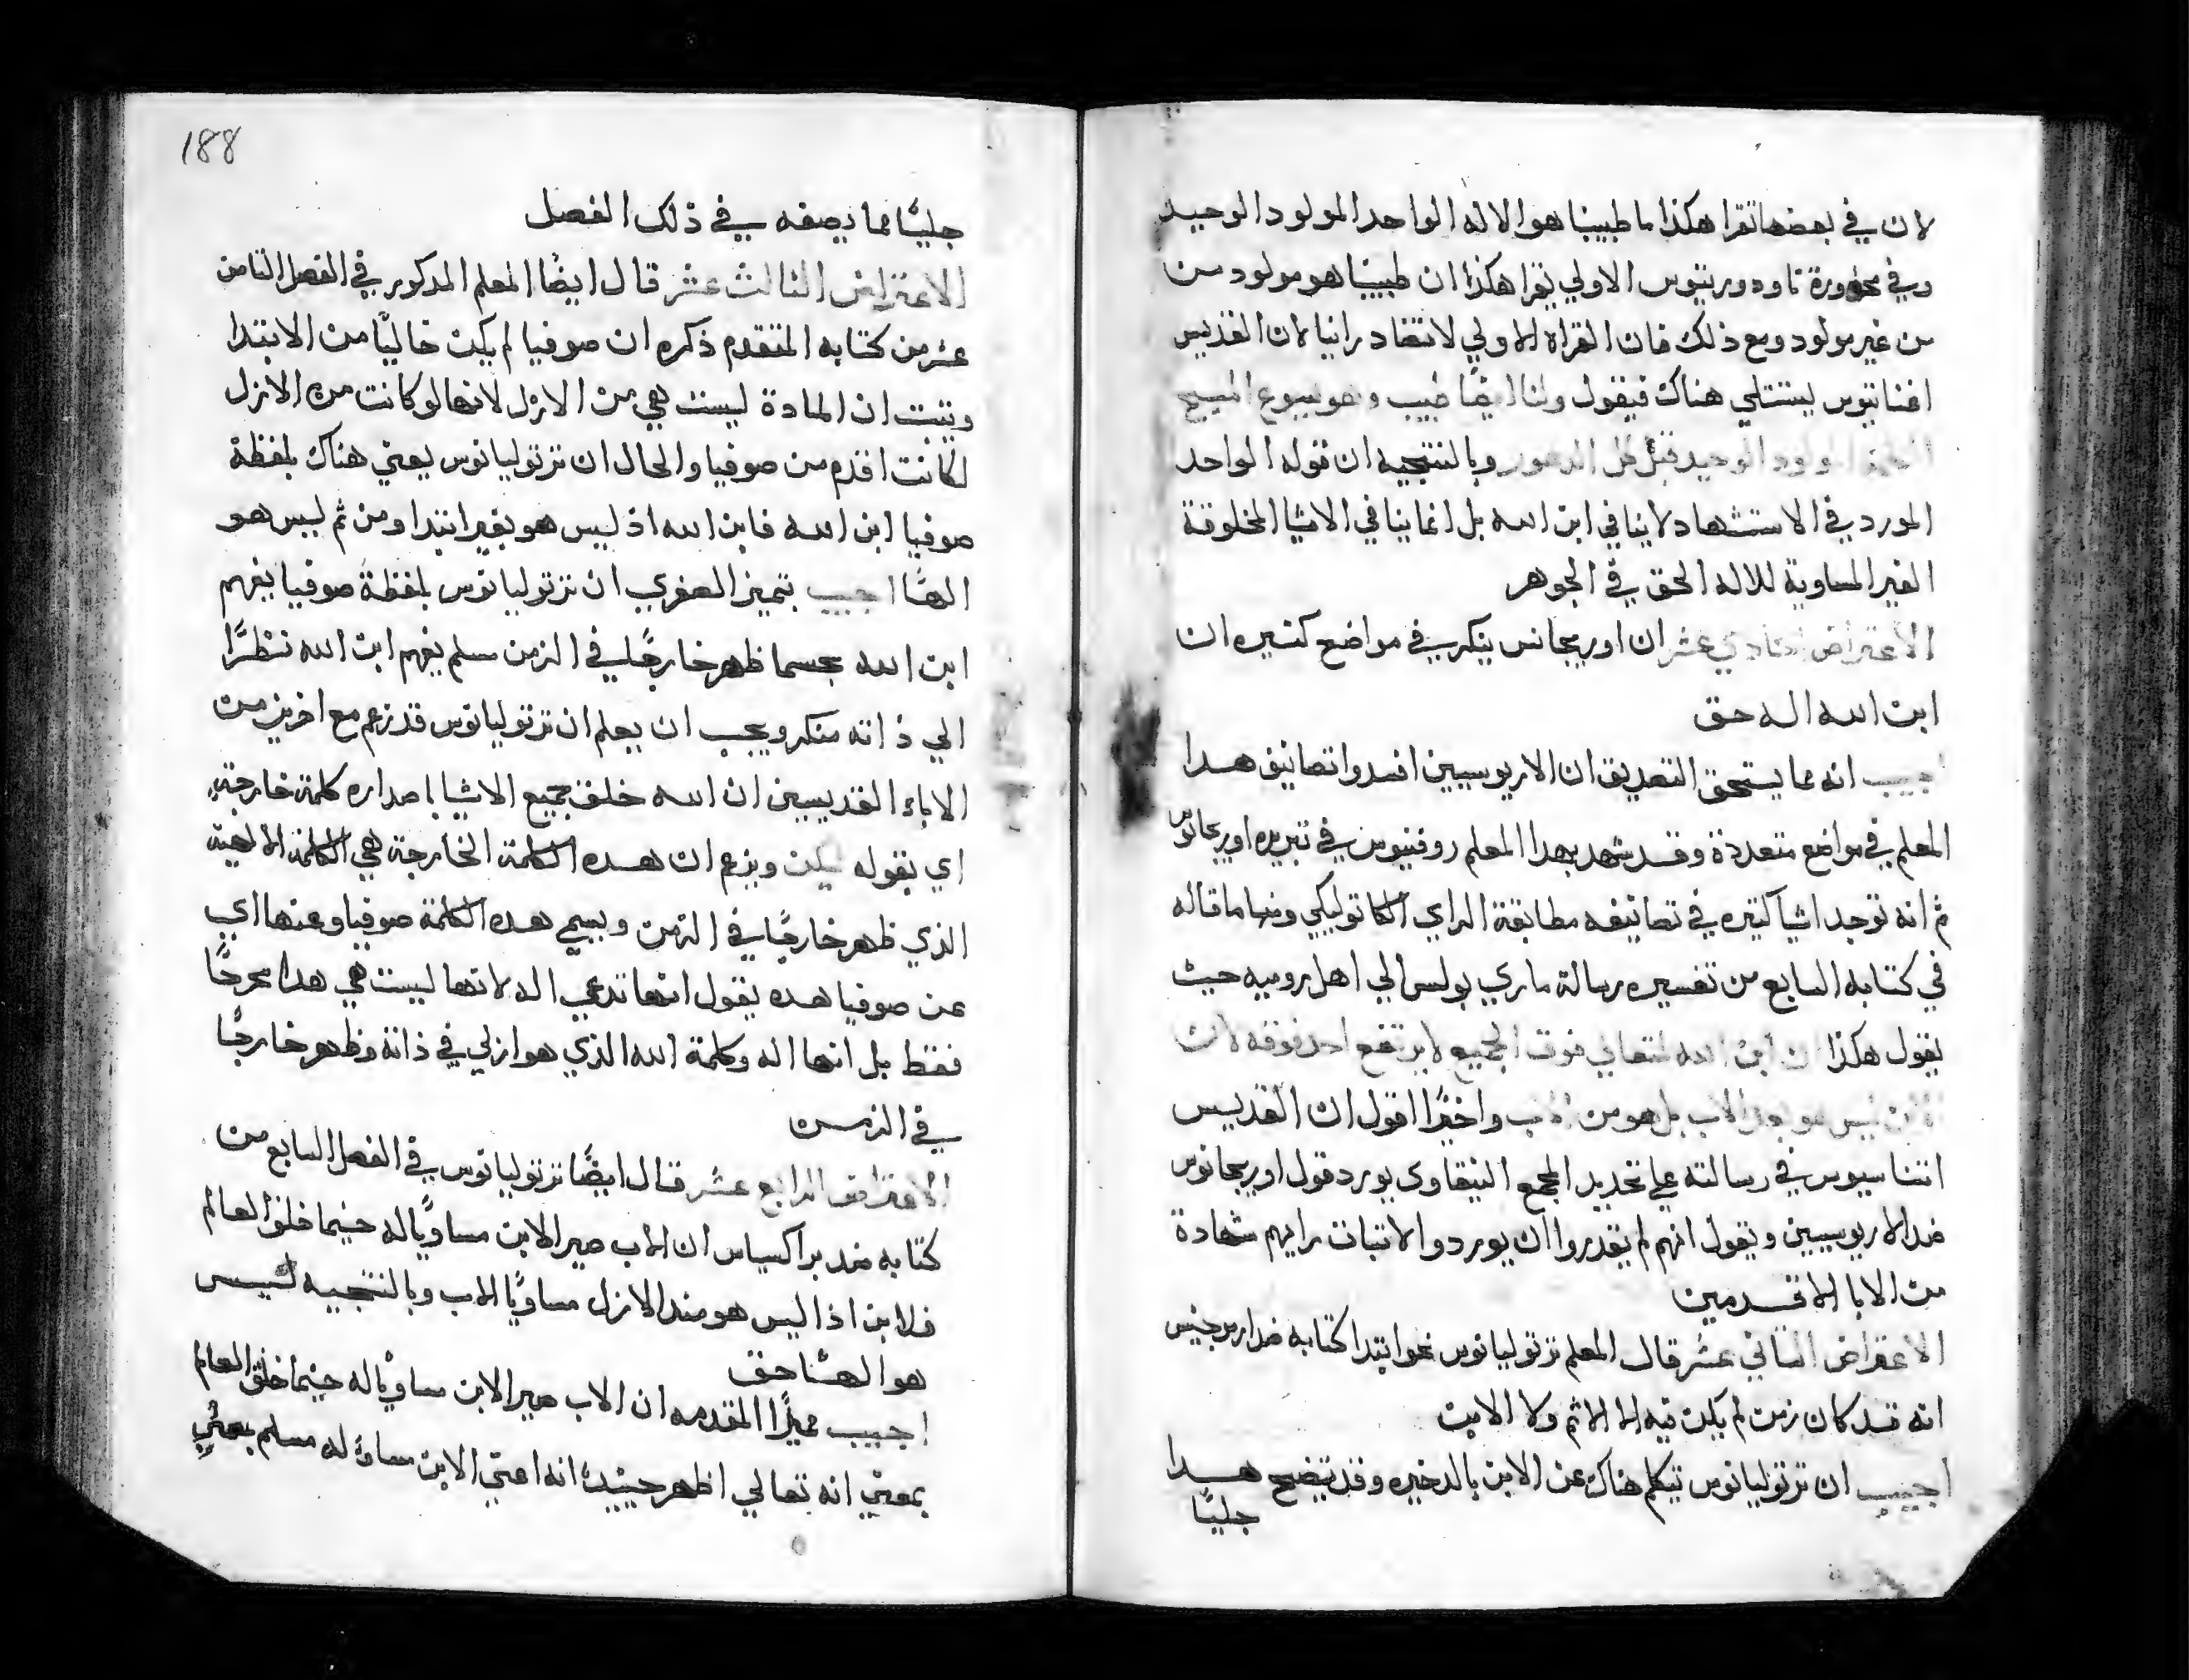 لان في بعضها تقرا هكذا ما طبيبنا هو الاله الواحد المولود الوحيد
وفي محوورة تاودوريتوس الاولي يقرا هكذا ان طبيبنا هو مولود من
من غير مولود ومع ذلك فان القراة الاولي لا تضاد راينا لان القديس
اغناتيوس يستتلي هناك فيقول ولنا ايضًا طبيب وهو يسوع المسيح
المولود الوحيد قبل كل الدهور وبالنتيجيه ان قوله الواحد
المورد في الاستشهاد لا ينافي ابن الله بل انما ينافي الاشيا المخلوقة
الغير المساوية للاله الحق في الجوهر
الاعتراض الحادي عشر ان اوريجانس ينكر في مواضع كثيره ان
ابن الله اله حق
اجيب انه مما يستحق التصديق ان الاريوسيين افسدوا تصانيف هدا
المعلم في مواضع متعددة وقد شهد بهدا المعلم روفنيوس في تبريره اوريجانوس
ثم انه توجد اشيا كتيره في تصانيفه مطابقة الراي الكاتوليكي ومنها ما قاله
في كتابه السابع من تفسيره رسالة ماري بولس الي اهل روميه حيث
يقول هكذا ان ابن الله المتعالي فوق الجميع لا يرتفع احد فوقه لان
الابن ليس هو بعد الاب بل هو من الاب واخيرًا اقول ان القديس
اتناسيوس في رسالته علي تحديد المجمع النيقاوي يورد قول اوريجانوس
ضد الاريوسيين ويقول انهم لم يقدروا ان يوردوا لاتبات رايهم شهادة
من الابا الاقدمين
الاعتراض التاني عشر قال المعلم ترتوليانوس نحو ابتدا كتابه ضد ارمرجنيس
انه قد كان زمن لم يكن فيه لا الاثم ولا الابن
اجيب ان ترتوليانوس تيكلم هناك عن الابن بالدخيره وقد يتضح هدا
جليًا
188
جليًا مما يصفه في ذلك الفصل
الاعتراض الثالث عشر قال ايضًا المعلم المدكور في الفصل التامن
عشر من كتابه المتقدم ذكره ان صوفيا لم يكن خاليًا من الابتدا
ويتبت ان المادة ليست هي من الازل لانها لو كانت من الازل
لكانت اقدم من صوفيا والحال ان ترتوليانوس يعني هناك بلفظة
صوفيا ابن الله فابن الله اذ ليس هو بغير ابتدا ومن ثم ليس هو
الهًا اجيب بتميز الصغري ان ترتوليانوس بلفظة صوفيا يفهم
ابن الله بحسما ظهر خارجًا في الزمن مسلم يفهم ابن الله نظرًا
الي ذاته منكر ويجب ان يعلم ان ترتوليانوس قد زعم مع اخرين من
الاباء القديسين ان الله خلق جميع الاشيا باصداره كلمة خارجة
اي بقوله ليكن ويزعم ان هده الكلمة الخارجة هي الكلمة الالهية
الذي ظهر خارجًا في الزمن ويسمي هده الكلمة صوفيا وعنها اي
عن صوفيا هده يقول انها تدعي اله لانها ليست هي هدا مخرجًا
فقط بل انها اله وكلمة الله الذي هو ازلي في ذاتة وظهر خارجًا
في الزمن
الاعتراض الرابع عشر قال ايضًا ترتوليانوس في الفصل السابع من
كتابه ضد براكسياس ان الاب صير الابن مساويًا له حينما خلق العالم
فلابن اذا ليس هو مند الازل مساويًا الاب وبالنتجيه ليس
هو الهًا حق
اجيب مميزًا المقدمه ان الاب صير الابن مساويًا له حينما خلق العالم
بمعني انه تعالي اظهر حينيد انه اعني الابن مساو له مسلم بمعني